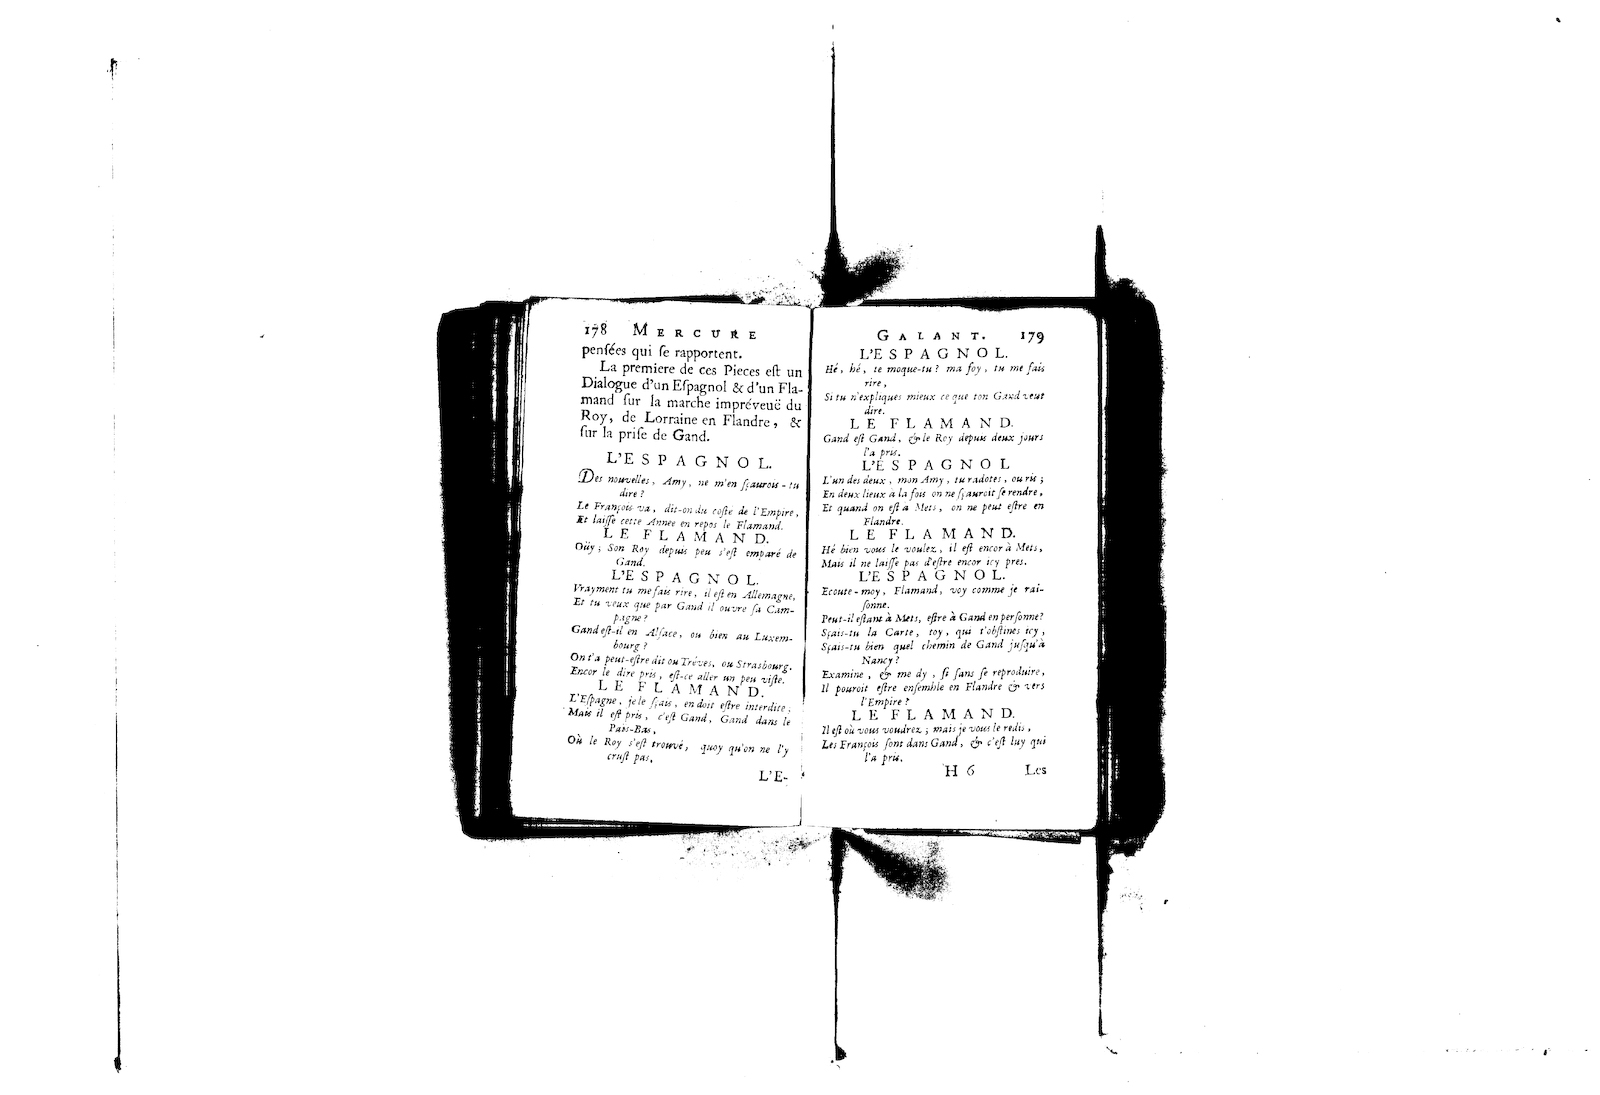 178 MERCURE
penſées qui ſe rapportent.
La premiere de ces Pieces eſt un
Dialogue d'un Eſpagnol & d'un Fla-
mand ſur la marche impréveuë du
Roy, de Lorraine en Flandre, &
ſur la priſe de Gand.
L'ESPAGNOL.
Des nouvelles, Amy, ne m'en ſçaurois-tu
dire?
Le François va, dit-on du coſte de l'Empire,
Et laiſſe cette Annee en repos le Flamand.
LE FLAMAND.
Oüy; Son Roy depuis peu s'eſt emparé de
Gand.
L'ESPAGNOL.
Vrayment tu me fais rire, il eſt en Allemagne,
Et tu veux que par Gand il ouvre ſa Cam-
pagne?
Gand eſt-il en Alſace, ou bien au Luxem-
bourg?
On t'a peut-eſtre dit ou Tréves, ou Strasbourg.
Encor le dire pris, eſt-ce aller un peu viſte.
LE FLAMAND.
L'Eſpagne, je le ſçais, en doit eſtre interdite;
Mais il eſt pris, c'eſt Gand, Gand dans le
Païs-Bas,
Où le Roy s'eſt trouvé, quoy qu'on ne l'y
cruſt pas.
L'E-
GALANT. 179
L'ESPAGNOL.
Hé, hé, te moque-tu? ma foy, tu me fais
rire,
Si tu n'expliques mieux ce que ton Gand veut
dire.
LE FLAMAND.
Gand eſt Gand, & le Roy depuis deux jours
l'a pris.
L'ESPAGNOL
L'un des deux, mon Amy, tu radotes, ou ris;
En deux lieux à la fois on ne ſçauroit ſe rendre,
Et quand on eſt a Mets, on ne peut eſtre en
Flandre.
LE FLAMAND.
Hé bien vous le voulez, il eſt encor à Mets,
Mais il ne laiſſe pas d'eſtre encor icy pres.
L'ESPAGNOL.
Ecoute-moy, Flamand, voy comme je rai-
ſonne.
Peut-il eſtant à Mets, eſtre à Gand en perſonne?
Sçais-tu la Carte, toy, qui t'obſtines icy,
Sçais-tu bien quel chemin de Gand juſqu'à
Nancy?
Examine, & me dy, ſi ſans ſe reproduire,
Il pouroit eſtre enſemble en Flandre & vers
l'Empire?
LE FLAMAND.
Il eſt où vous voudrez; mais je vous le redis,
Les François ſont dans Gand, & c'eſt luy qui
l'a pris.
H 6 Les